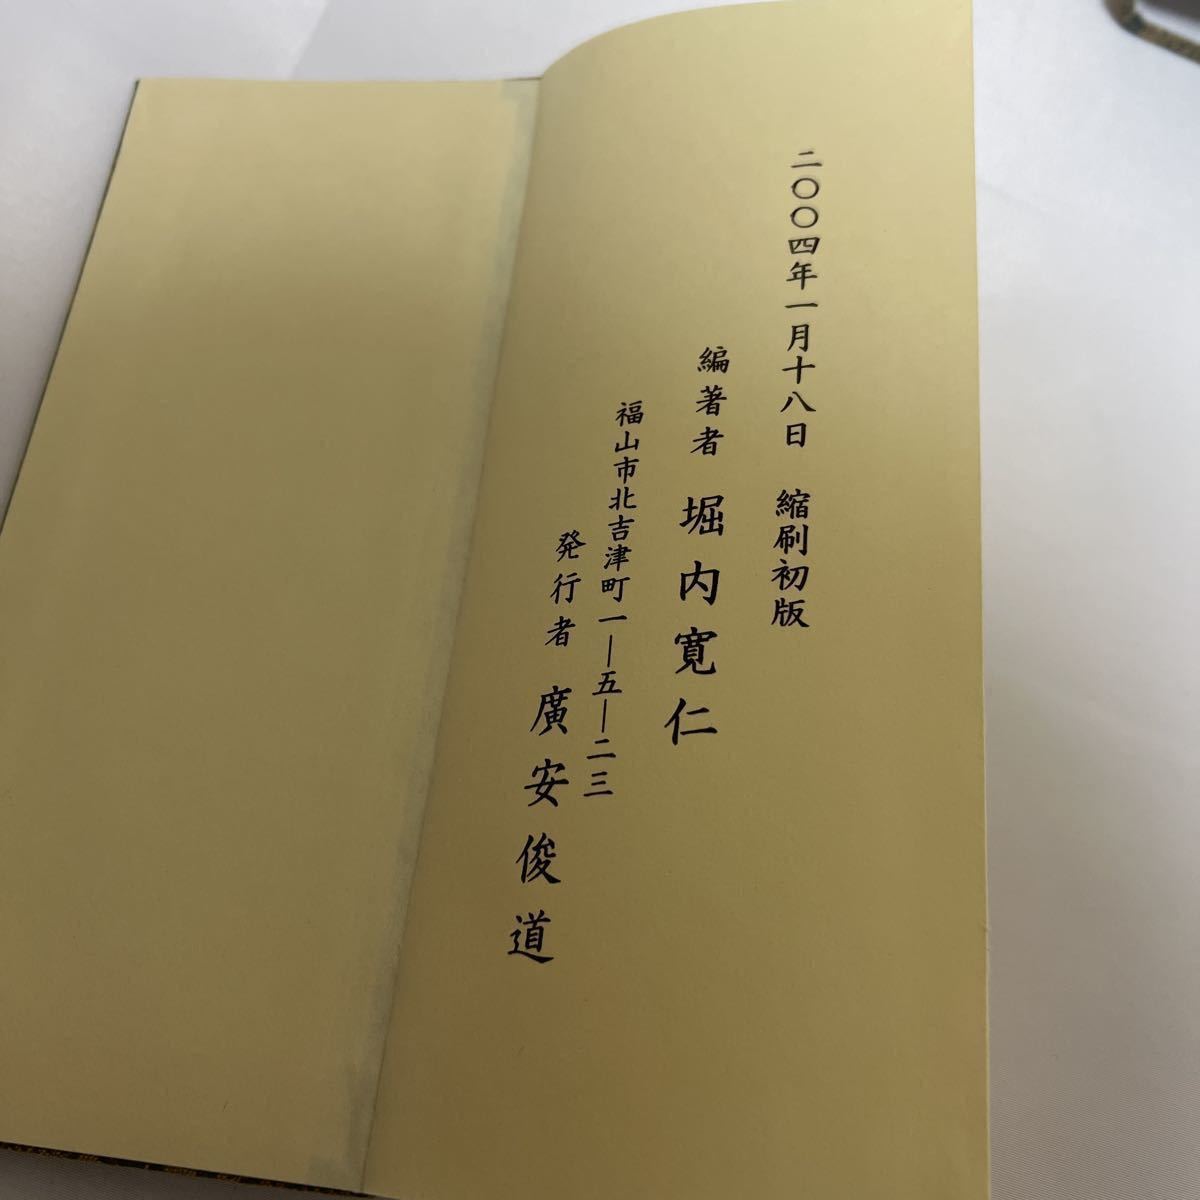 二〇〇四年一月十八日　縮刷初版
編著者　堀内寛仁
福山市北吉津町一―五―二三
発行者　廣安俊道